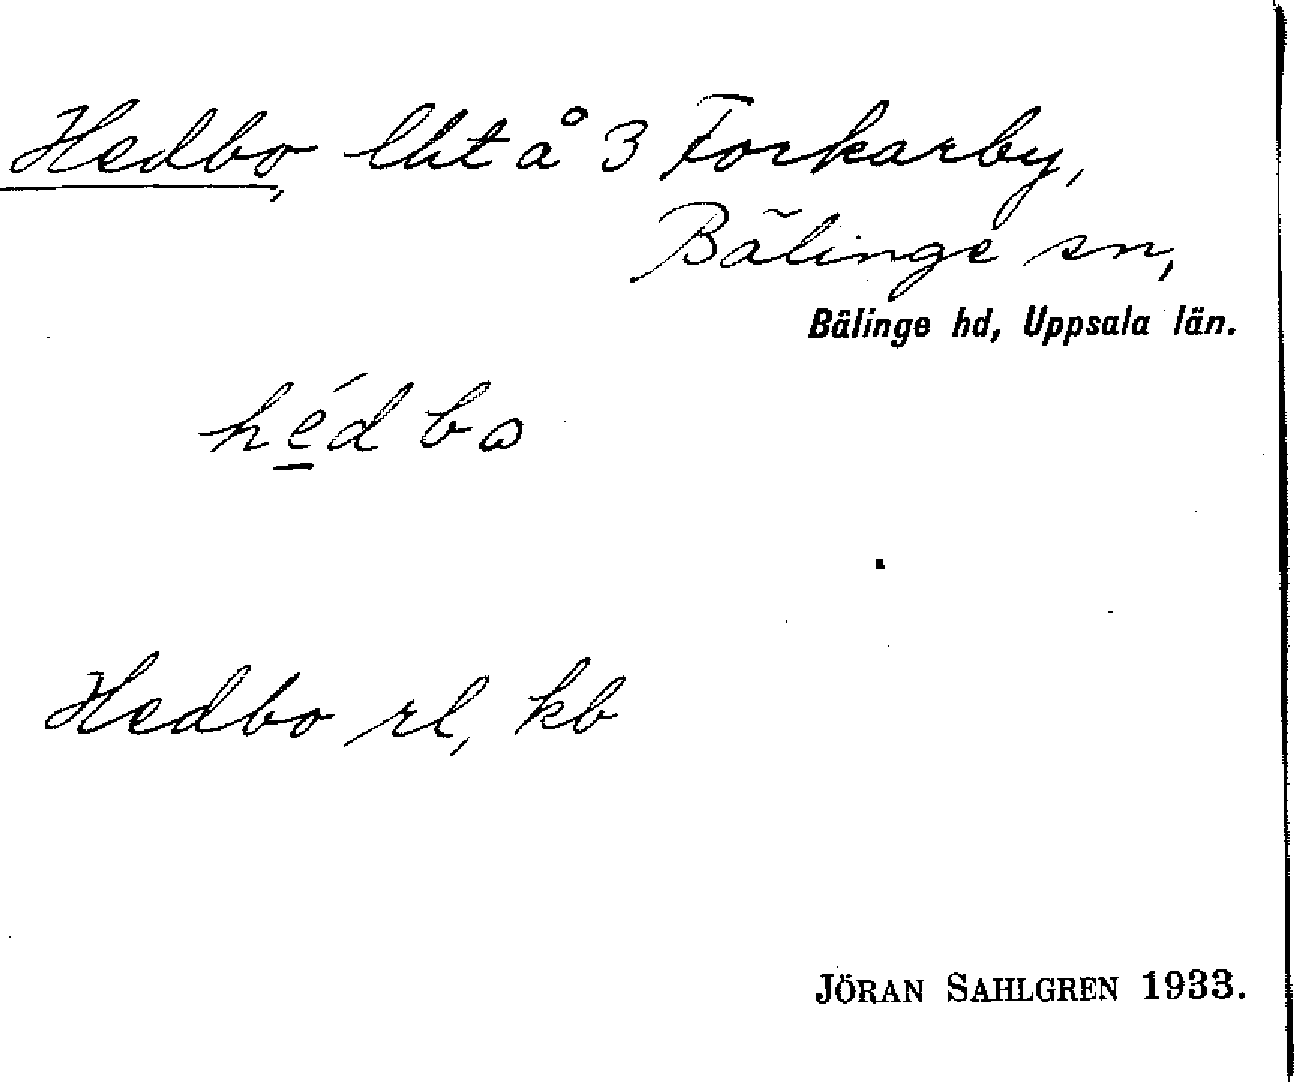 Hedbo, lht å 3 Forkarby,
Bälinge sn,
Bälinge hd, Uppsala län.
hédbo
Hedbo rl, kb
JÖRAN SAHLGREN 1933.